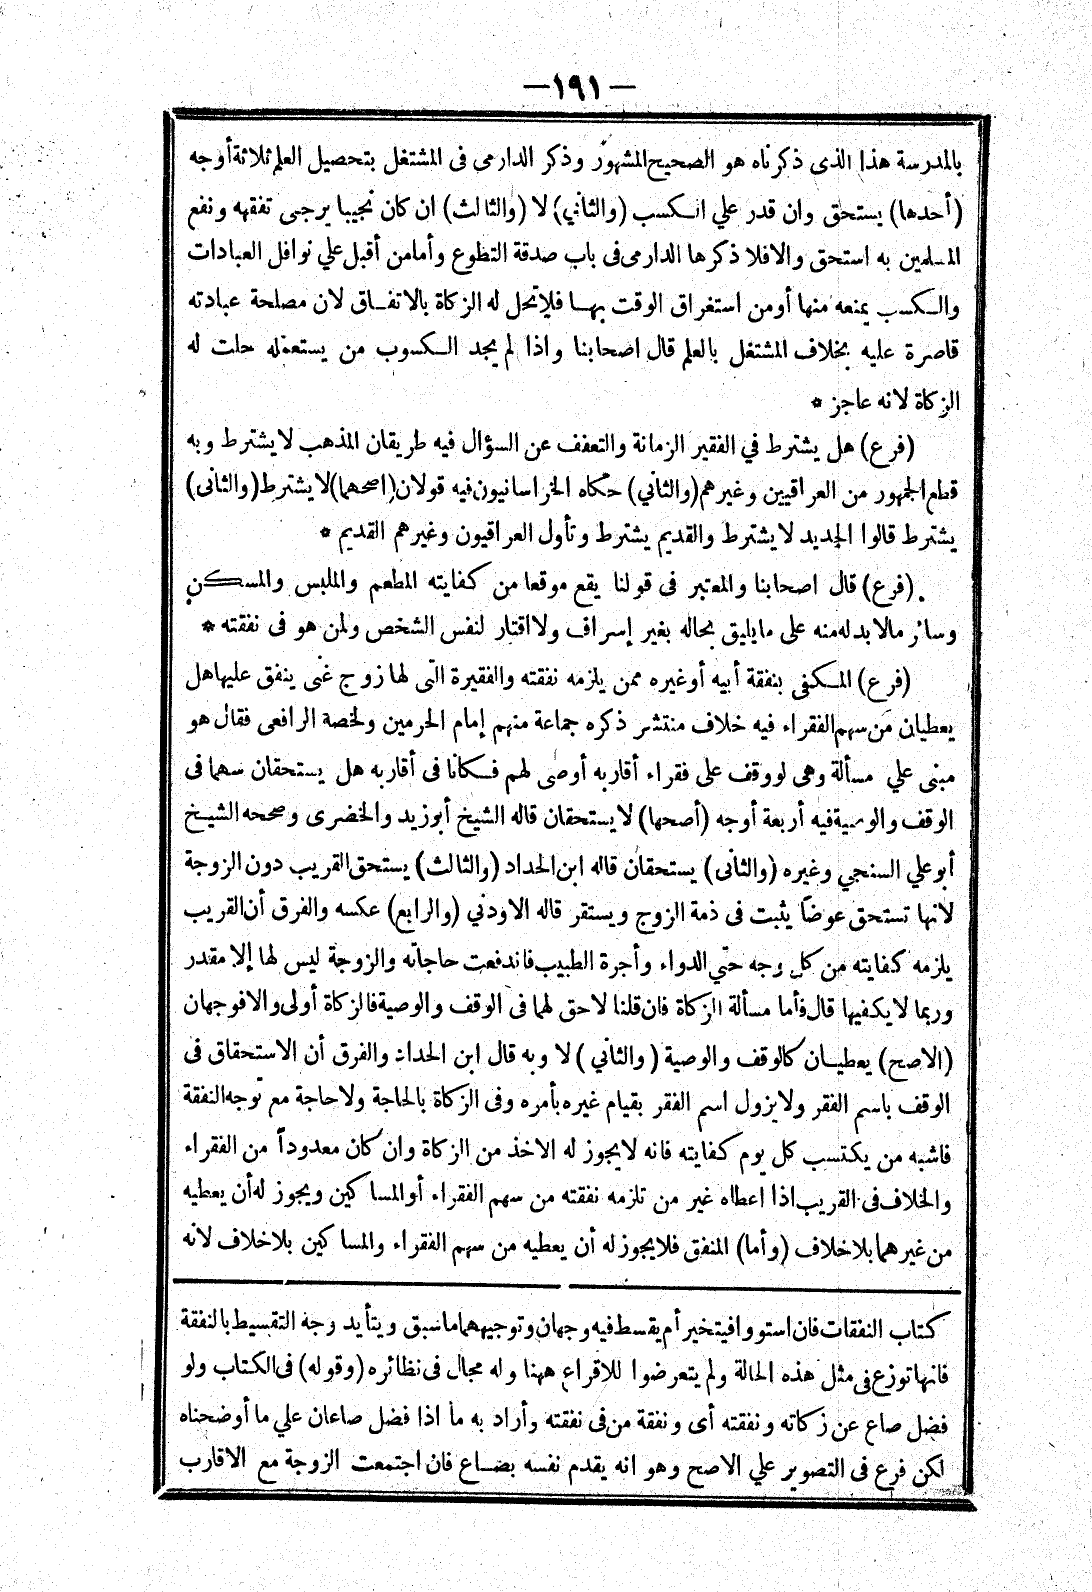 —١٩١—
بالمدرسة هذا الذى ذكرناه هو الصحيح المشهور وذكر الدارمى فى المشتغل بتحصيل العلم ثلاثة أوجه
(أحدها) يستحق وان قدر علي الكسب (والثاني) لا (والثالث) ان كان نجيبا يرجى تفقهه ونفع
المسلمين به استحق والافلا ذكرها الدارمى فى باب صدقة التطوع وأما من أقبل علي نوافل العبادات
والكسب يمنعه منها أومن استغراق الوقت بها فلا تحل له الزكاة بالاتفاق لان مصلحة عبادته
قاصرة عليه بخلاف المشتغل بالعلم قال اصحابنا واذا لم يجد الكسوب من يستعمله حلت له
الزكاة لانه عاجز *
(فرع) هل يشترط في الفقير الزمانة والتعفف عن السؤال فيه طريقان المذهب لا يشترط وبه
قطع الجمهور من العراقيين وغيرهم (والثاني) حكاه الخراسانيون فيه قولان (اصحهما) لا يشترط (والثانى)
يشترط قالوا الجديد لا يشترط والقديم يشترط وتأول العراقيون وغيرهم القديم *
(فرع) قال اصحابنا والمعتبر فى قولنا يقع موقعا من كفايته المطعم والملبس والمسكن
وسائر مالا بد له منه على ما يليق بحاله بغير إسراف ولا اقتار لنفس الشخص ولمن هو فى نفقته *
(فرع) المكفى بنفقة أبيه أوغيره ممن يلزمه نفقته والفقيرة التى لها زوج غنى ينفق عليها هل
يعطيان من سهم الفقراء فيه خلاف منتشر ذكره جماعة منهم إمام الحرمين ولخصه الرافعى فقال هو
مبنى علي مسألة وهى لو وقف على فقراء أقاربه أوصى لهم فكانا فى أقاربه هل يستحقان سهما فى
الوقف والوصية فيه أربعة أوجه (أصحها) لا يستحقان قاله الشيخ أبوزيد والخضرى وصححه الشيخ
أبو علي السنجي وغيره (والثانى) يستحقان قاله ابن الحداد (والثالث) يستحق القريب دون الزوجة
لانها تستحق عوضا يثبت فى ذمة الزوج ويستقر قاله الاودني (والرابع) عكسه والفرق أن القريب
يلزمه كفايته من كل وجه حتي الدواء وأجرة الطبيب فاندفعت حاجاته والزوجة ليس لها إلا مقدر
وربما لا يكفيها قال فأما مسألة الزكاة فان قلنا لا حق لهما فى الوقف والوصية فالزكاة أولى والافوجهان
(الاصح) يعطيان كالوقف والوصية (والثاني) لا وبه قال ابن الحداد والفرق أن الاستحقاق فى
الوقف باسم الفقر ولا يزول اسم الفقر بقيام غيره بأمره وفى الزكاة بالحاجة ولا حاجة مع توجه النفقة
فاشبه من يكتسب كل يوم كفايته فانه لا يجوز له الاخذ من الزكاة وان كان معدوداً من الفقراء
والخلاف فى القريب اذا اعطاه غير من تلزمه نفقته من سهم الفقراء أو المساكين ويجوز له أن يعطيه
من غيرهما بلا خلاف (وأما) المنفق فلا يجوز له أن يعطيه من سهم الفقراء والمساكين بلا خلاف لانه
كتاب النفقات فان استووا فيتخير أم يقسط فيه وجهان وتوجيههما ما سبق ويتأيد وجه التقسيط بالنفقة
فانها توزع فى مثل هذه الحالة ولم يتعرضوا للاقراع ههنا وله مجال فى نظائره (وقوله) فى الكتاب ولو
فضل صاع عن زكاته ونفقته أى ونفقة من فى نفقته وأراد به ما اذا فضل صاعان علي ما أوضحناه
لكن فرع فى التصوير علي الاصح وهو انه يقدم نفسه بصاع فان اجتمعت الزوجة مع الاقارب